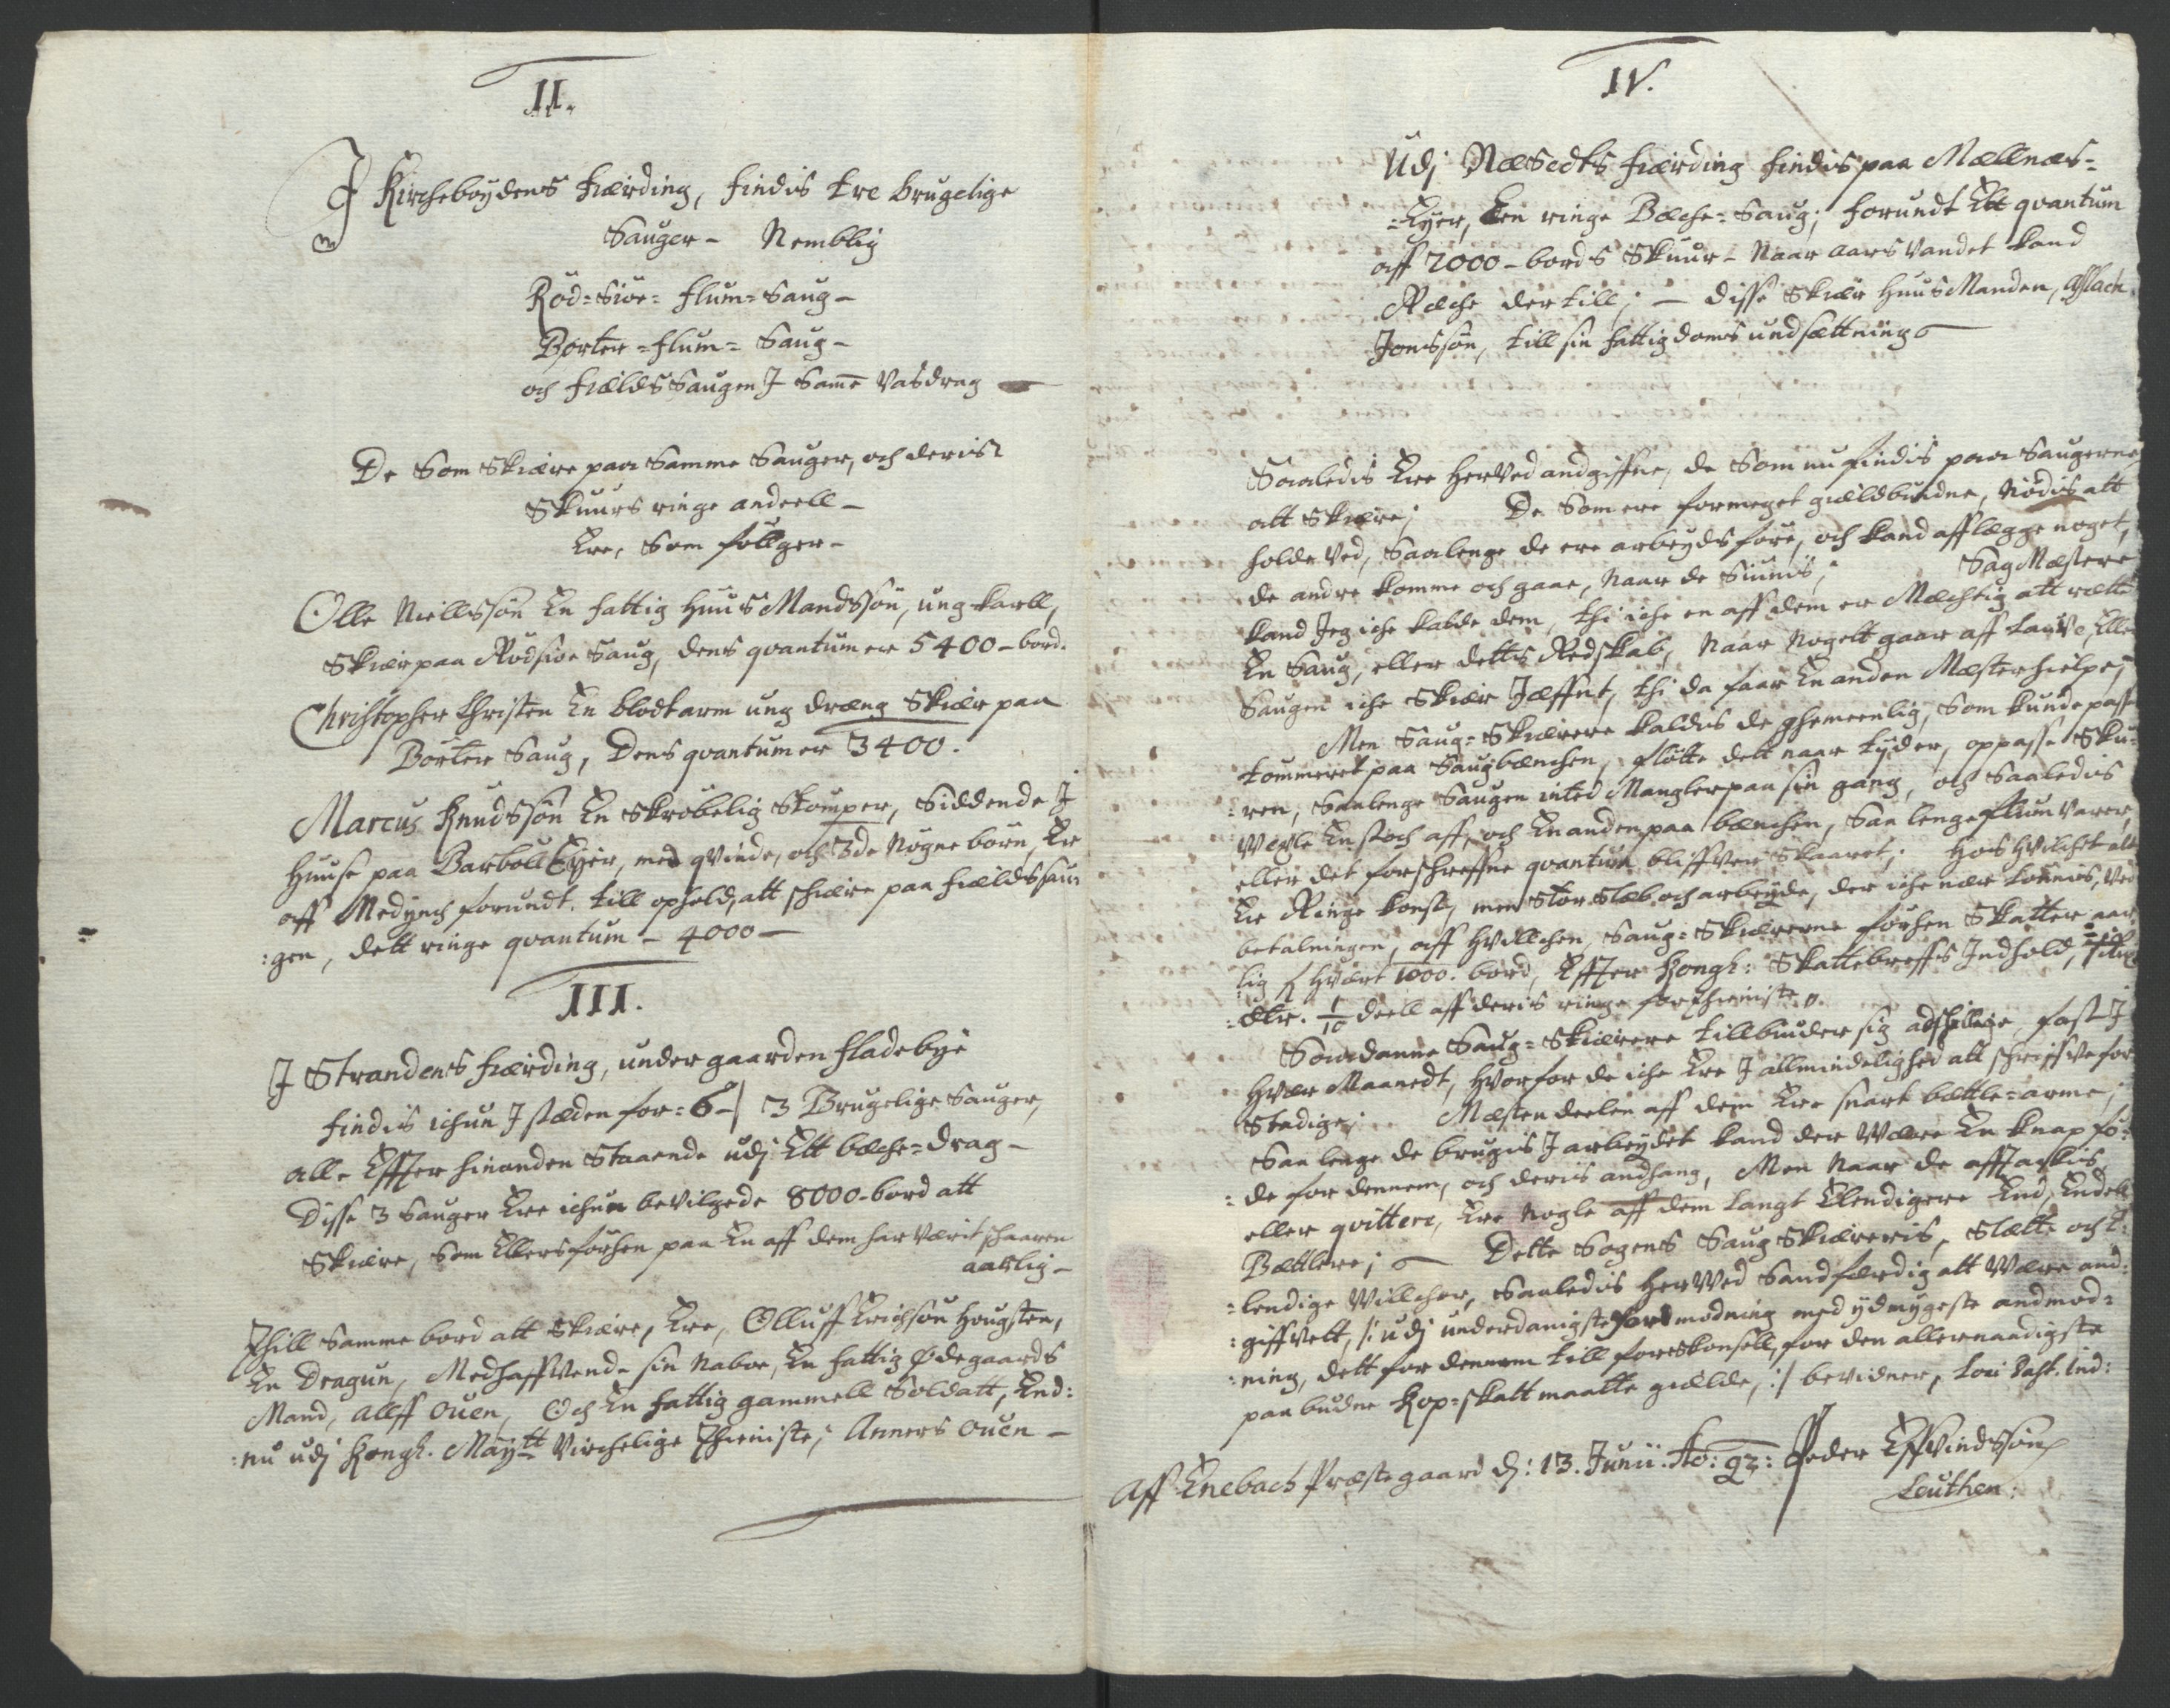 II.
I Kircheboÿdens fiærding, findis tre brugelige
Sauger – Nemblig
Röd=Siöe=flum=Saug –
Börter=flum=Saug –
och fiælds Saugen J Samme Vasdrag
De Som Skiære paa Samme Sauger, och deris
Skuurs ringe andeell –
Ere, Som föllger –
Olle Niellssön En fattig Huus Mandssön, ung-karll,
Skiær paa Rödsiöe Saug, dens qvantum er 5400 – bord.
Christopher Christen En blodtarm ung dræng Skiær paa
Börter Saug, Dens qvantum er 3400.
Marcus Knudssön En Skröbelig Stömper, Siddende J
Huuse paa Barböll Eÿer, med qvinde, och 3de Nögne börn, Er
aff Medÿnch forundt till ophold, att schiære paa fieldssau
:gen, dett ringe qvantum – 4000 –
III.
J Strandens fiærding, under gaarden fladebÿe
findis ichun J stæden for =6 –/ 3 Brugelige Sauger,
alle Effter hinanden Staaende udj Ett bæche=drag –
Disse 3 Sauger Ere ichun bevilgede 8000 – bord att
Skiære, Som Ellers forhen paa En aff dem har værit schaaren
aarlig –
Thill Samme bord att Skiære, Ere, Olluff Erichsön Hougsten,
En Dragun, Medhaffvende sin Naboe, En fattig Ödegaards
Mand, Alff Ouen, Och En fattig gammell Soldatt, End:
:nu udj Kongl. Maÿtt Virchelige Thieniste; Anners Ouen –
IV.
Udj Næsedts fiærding findis paa Mællnæs=
=Eÿer, Een ringe Bæche=Saug; forundt Ett qvantum
aff 2000 – bords Skuur – Naar aars vandet kand
Ræche der till; – disse Skiær Huus Manden, Aslach
Jonssön, till sin fattigdoms undsættning
Saaledis Ere herved andgiffne, de Som nu findis paa Saugerne
att Skiære; De Som ere formeget giældbundne, Nödis att
holde ved, Saalenge de ere arbeÿds före, och kand afflægge noget,
de andre komme och gaae, Naar de Siunis; Sag Mæstere
kand Jeg iche kalde dem, thi iche en aff dem er Mæchtig att rætte
En Saug, eller dettis Redskab, Naar Nogett gaar aff Lauve, Eller
Saugen iche Skiær Jæffnt, thi da faar En anden Mæster hielpe;
Men Saug=Skiærere kaldis de ghemeenlig, Som kunde passe
tommeret paa Saugbænchen, flötte dett naar tÿder, oppasse Sku:
:ren, Saalenge Saugen inted Mangler paa sin gang, och Saaledis
Wexle En stoch aff, och En anden paa bænchen, Saa lenge flum varer,
eller det forschreffne qvantum bliffver Skaaret; Hos hvilchet alt
Er Ringe konst, men Stor Slæb och arbeÿde, der iche nær lönnis, Ved
betalningen, aff hvilchen, Saug=Skiærerne forhen Skatter aar
lig hvært 1000. bord, Effter Kongl: Skattebreffs Indhold,
:dlr. 1/10 deell aff deris ringe forthieniste.
Saadanne Saug=Skiærere tillbinder sig adschillige, fast J
Hver Maanedt, hvorfor de iche Ere J allmindelighed att schriffve for
Stadige; Mæsten deelen aff dem Ere snart bettle=arme;
Saa lenge de brugis J arbeÿdet kand der Være En knap fö:
:de for dennem, och deris andhang, Men Naar de afftachis
eller qvittere, Ere Nogle aff dem langt Elendigere End, Endell
Bættlere; Dette Sogens Saug Skiæreris, Slætte och E:
:lendige Willchor, Saaledis her Wed Sandfærdig att Være and:
:giffvett, /: udj underdanigste formodning med ÿdmÿgeste andmod=
:ning, dett for dennem till foreskonsell, for den allernaadigste
paabudne Kop=skatt maatte giælde, :/ bevidner, Loci Past. Ind:
Aff Enebach Præstegaard d: 13. Junii. Ao: 92: Peder Effvindssön
Leuthen: